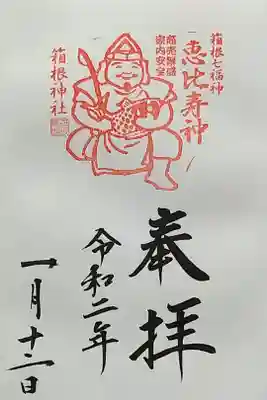 箱根七福神
恵比寿神
商売繁盛
家内安全
箱根神社
奉拝
令和二年
一月十二日